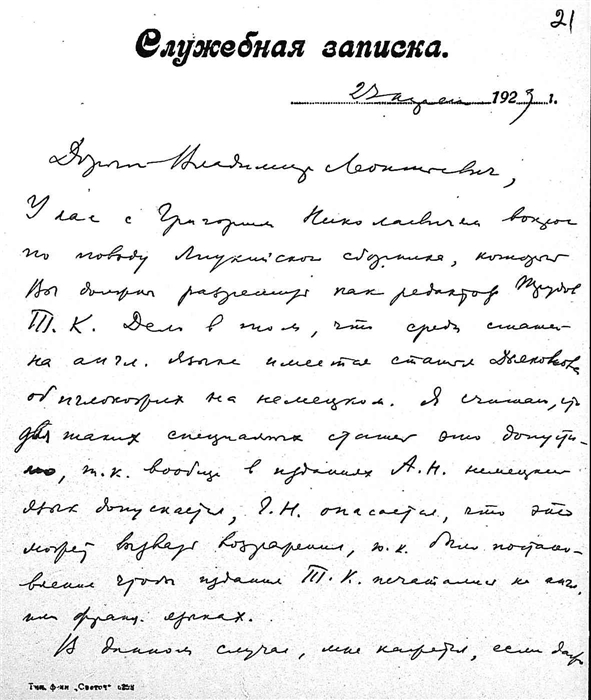 21
Служебная записка.
23 апреля 1923 г.
Дорогой Владимир Леонтьевич,
У нас с Григорием Николаевичем вопрос
по поводу сборника, который
Вы должны разрешить как редактор Трудов
Т. К. Дело в том, что среди статей
на англ. языке имеется статья Дьяконова
об иглокожих на немецком. Я считаю, что
для таких специальных статей это допусти-
мо, т.к. вообще в изданиях А.Н. немецкий
язык допускается, Г.Н. опасается, что это
может вызвать возражения, т.к. было постано-
вление чтобы издания Т.К. печатались на англ.
или франц. языках.
В данном случае, мне кажется, если
Тип. ф-ки „Светоч"